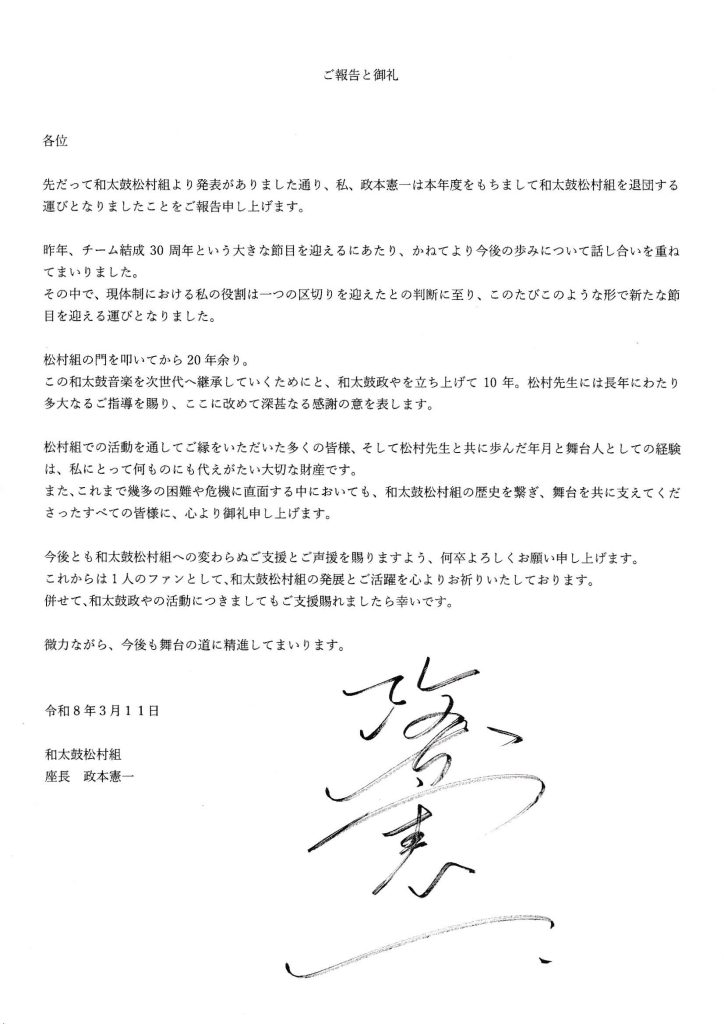 ご報告と御礼
各位
先だって和太鼓松村組より発表がありました通り、私、政本憲一は本年度をもちまして和太鼓松村組を退団する
運びとなりましたことをご報告申し上げます。
昨年、チーム結成 30 周年という大きな節目を迎えるにあたり、かねてより今後の歩みについて話し合いを重ね
てまいりました。
その中で、現体制における私の役割は一つの区切りを迎えたとの判断に至り、このたびこのような形で新たな節
目を迎える運びとなりました。
松村組の門を叩いてから 20 年余り。
この和太鼓音楽を次世代へ継承していくためにと、和太鼓政やを立ち上げて 10 年。松村先生には長年にわたり
多大なるご指導を賜り、ここに改めて深甚なる感謝の意を表します。
松村組での活動を通してご縁をいただいた多くの皆様、そして松村先生と共に歩んだ年月と舞台人としての経験
は、私にとって何ものにも代えがたい大切な財産です。
また、これまで幾多の困難や危機に直面する中においても、和太鼓松村組の歴史を繋ぎ、舞台を共に支えてくだ
さったすべての皆様に、心より御礼申し上げます。
今後とも和太鼓松村組への変わらぬご支援とご声援を賜りますよう、何卒よろしくお願い申し上げます。
これからは１人のファンとして、和太鼓松村組の発展とご活躍を心よりお祈りいたしております。
併せて、和太鼓政やの活動につきましてもご支援賜れましたら幸いです。
微力ながら、今後も舞台の道に精進してまいります。
令和８年３月１１日
和太鼓松村組
座長　政本憲一
政本憲一